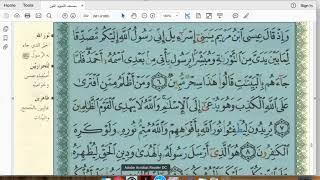 وَإِذْ قَالَ عِيسَى ٱبْنُ مَرْيَمَ يَٰبَنِىٓ إِسْرَٰٓءِيلَ إِنِّى رَسُولُ ٱللَّهِ إِلَيْكُم مُّصَدِّقًا
لِّمَا بَيْنَ يَدَىَّ مِنَ ٱلتَّوْرَىٰةِ وَمُبَشِّرًۢا بِرَسُولٍ يَأْتِى مِنۢ بَعْدِى ٱسْمُهُۥٓ أَحْمَدُ فَلَمَّا
جَآءَهُم بِٱلْبَيِّنَٰتِ قَالُوا۟ هَٰذَا سِحْرٌ مُّبِينٌ ٦ وَمَنْ أَظْلَمُ مِمَّنِ ٱفْتَرَىٰ
عَلَى ٱللَّهِ ٱلْكَذِبَ وَهُوَ يُدْعَىٰٓ إِلَى ٱلْإِسْلَٰمِ وَٱللَّهُ لَا يَهْدِى ٱلْقَوْمَ ٱلظَّٰلِمِينَ
٧ يُرِيدُونَ لِيُطْفِـُٔوا۟ نُورَ ٱللَّهِ بِأَفْوَٰهِهِمْ وَٱللَّهُ مُتِمُّ نُورِهِۦ وَلَوْ كَرِهَ
ٱلْكَٰفِرُونَ ٨ هُوَ ٱلَّذِىٓ أَرْسَلَ رَسُولَهُۥ بِٱلْهُدَىٰ وَدِينِ ٱلْحَقِّ لِيُظْهِرَهُۥ
نور الله
الحق الذي جاء
به الرسول
ظاهرين
Adobe Acrobat Reader DC